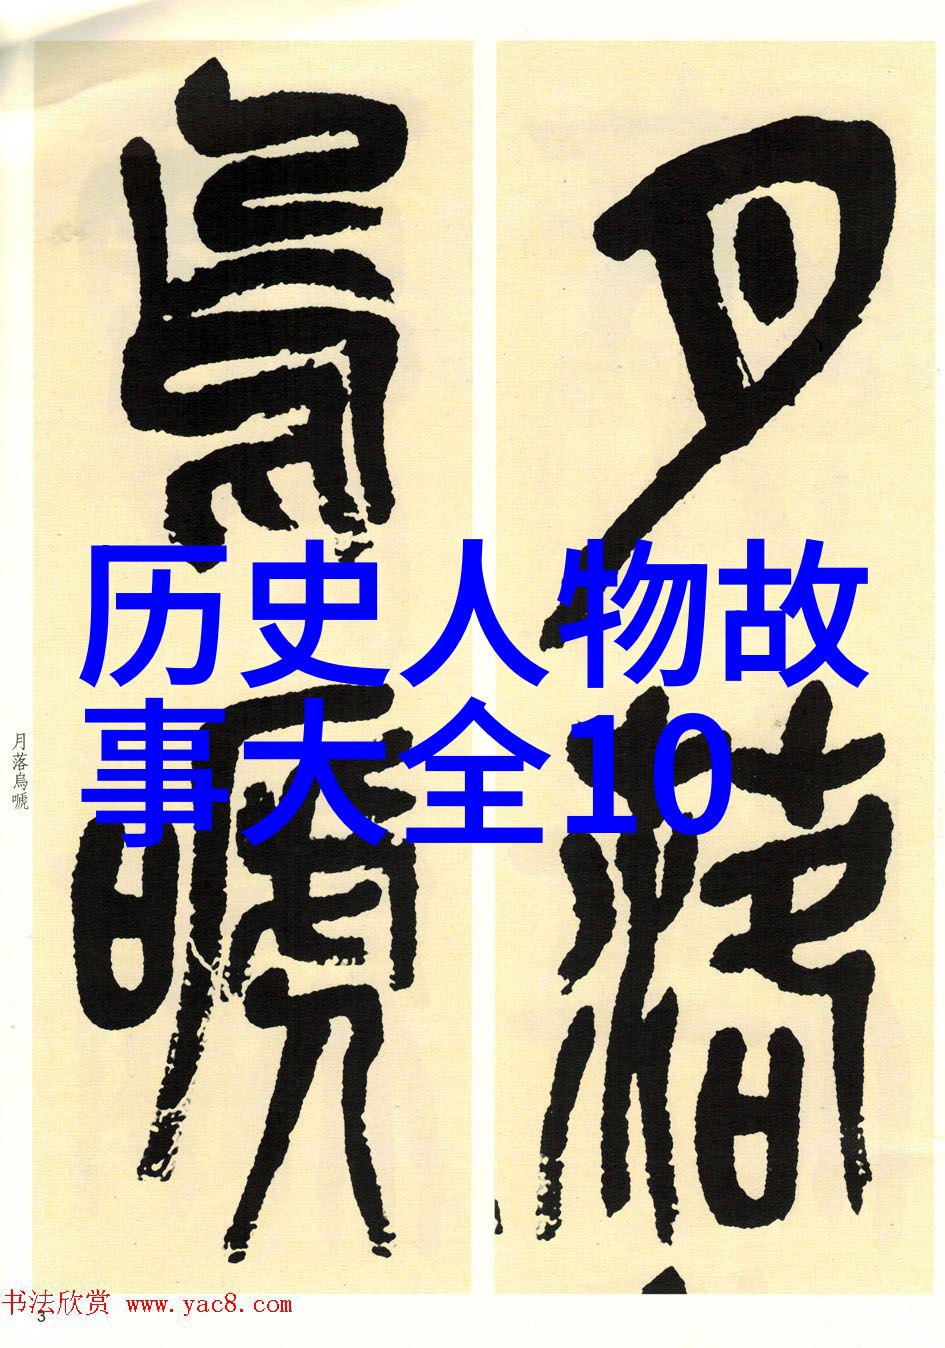 月落
烏嗁
月落烏嗁
历史人物故
事大全10
书法欣赏 www.yac8.com
3